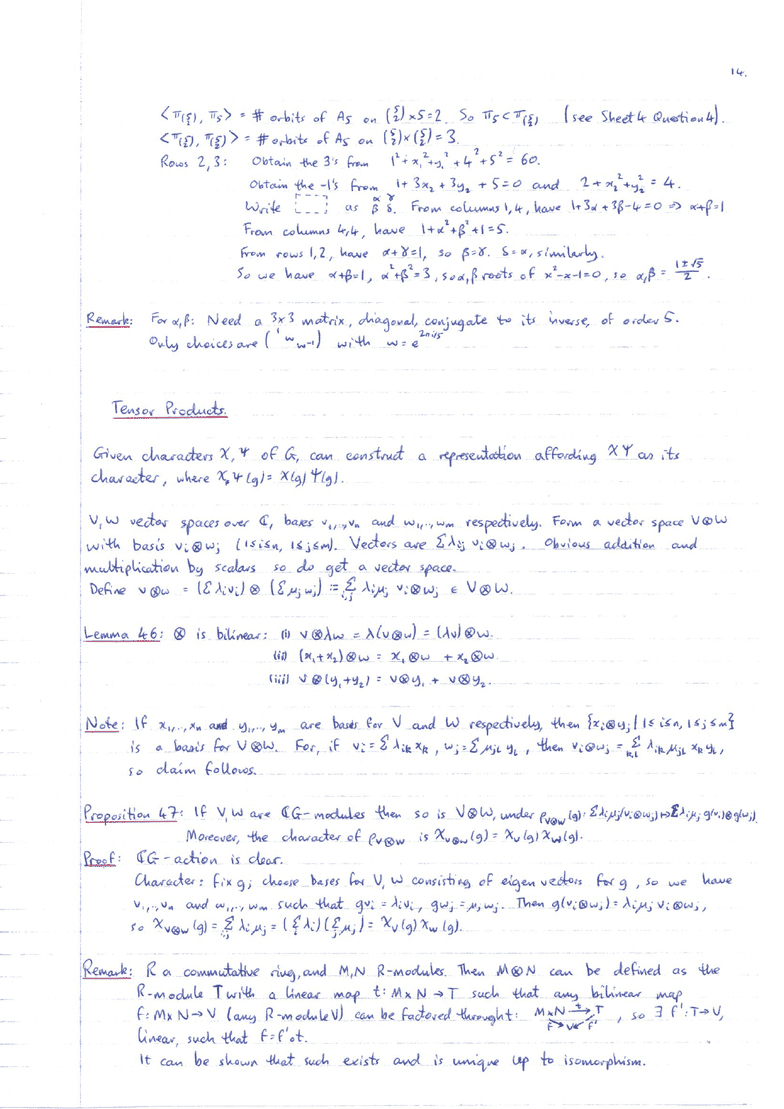 14.
<π_(5/2), π_5> = # orbits of A5 on (5/2)×5=2. So π_5 ⊂ π_(5/2) (see Sheet 4 Question 4).
<π_(5/2), π_(5/2)> = # orbits of A5 on (5/2)×(5/2) = 3.
Rows 2, 3: Obtain the 3's from 1²+x₁²+y₁²+4²+5² = 60.
Obtain the -1's from 1+3x₂+3y₂+5=0 and 2+x₂²+y₂² = 4.
Write [ ] as α γ β δ. From columns 1,4, have 1+3α+3β-4=0 ⇒ α+β=1
From columns 4,4, have 1+α²+β²+1=5.
From rows 1,2, have α+γ=1, so β=γ. δ=α, similarly.
So we have α+β=1, α²+β²=3, so α,β roots of x²-x-1=0, so α,β = (1±√5)/2.
Remark: For α,β: Need a 3×3 matrix, diagonal, conjugate to its inverse, of order 5.
Only choices are (1 w w⁻¹) with w=e^{2πi/5}
Tensor Products.
Given characters χ, ψ of G, can construct a representation affording χψ as its
character, where χψ(g)=χ(g)ψ(g).
V,W vector spaces over ℂ, bases v₁,..,vₙ and w₁,..,wₘ respectively. Form a vector space V⊗W
with basis vᵢ⊗wⱼ (1≤i≤n, 1≤j≤m). Vectors are Σλᵢⱼ vᵢ⊗wⱼ. Obvious addition and
multiplication by scalars so do get a vector space.
Define v⊗w = (Σλᵢvᵢ)⊗(Σμⱼwⱼ) := Σ_{i,j} λᵢμⱼ vᵢ⊗wⱼ ∈ V⊗W.
Lemma 46: ⊗ is bilinear: (i) v⊗λw = λ(v⊗w) = (λv)⊗w.
(ii) (x₁+x₂)⊗w = x₁⊗w + x₂⊗w.
(iii) v⊗(y₁+y₂) = v⊗y₁ + v⊗y₂.
Note: If x₁,..,xₙ and y₁,..,yₘ are bases for V and W respectively, then {xᵢ⊗yⱼ | 1≤i≤n, 1≤j≤m}
is a basis for V⊗W. For, if vᵢ=Σλᵢₖxₖ, wⱼ=Σμⱼₗyₗ, then vᵢ⊗wⱼ = Σ_{k,l} λᵢₖμⱼₗ xₖyₗ,
so claim follows.
Proposition 47: If V,W are ℂG-modules then so is V⊗W, under ρ_{V⊗W}(g): Σλᵢμⱼ(vᵢ⊗wⱼ) ↦ Σλᵢμⱼ g(vᵢ)⊗g(wⱼ).
Moreover, the character of ρ_{V⊗W} is χ_{V⊗W}(g)=χ_V(g)χ_W(g).
Proof: ℂG-action is clear.
Character: fix g; choose bases for V, W consisting of eigen vectors for g, so we have
v₁,..,vₙ and w₁,..,wₘ such that gvᵢ=λᵢvᵢ, gwⱼ=μⱼwⱼ. Then g(vᵢ⊗wⱼ)=λᵢμⱼvᵢ⊗wⱼ,
so χ_{V⊗W}(g) = Σ_{i,j} λᵢμⱼ = (Σ_i λᵢ)(Σ_j μⱼ) = χ_V(g)χ_W(g).
Remark: R a commutative ring, and M,N R-modules. Then M⊗N can be defined as the
R-module T with a linear map t: M×N→T such that any bilinear map
f: M×N→V (any R-module V) can be factored through t: M×N →t T, f→V←f', so ∃ f':T→V,
linear, such that f=f'∘t.
It can be shown that such exists and is unique up to isomorphism.